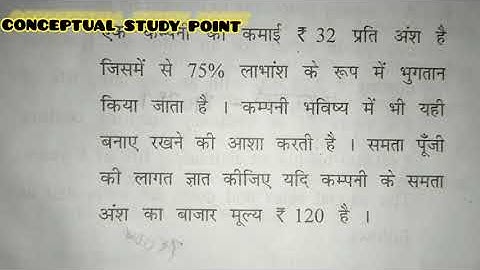 CONCEPTUAL STUDY POINT
एक कम्पनी की कमाई ₹ 32 प्रति अंश है
जिसमें से 75% लाभांश के रूप में भुगतान
किया जाता है । कम्पनी भविष्य में भी यही
बनाए रखने की आशा करती है । समता पूँजी
की लागत ज्ञात कीजिए यदि कम्पनी के समता
अंश का बाजार मूल्य ₹ 120 है ।